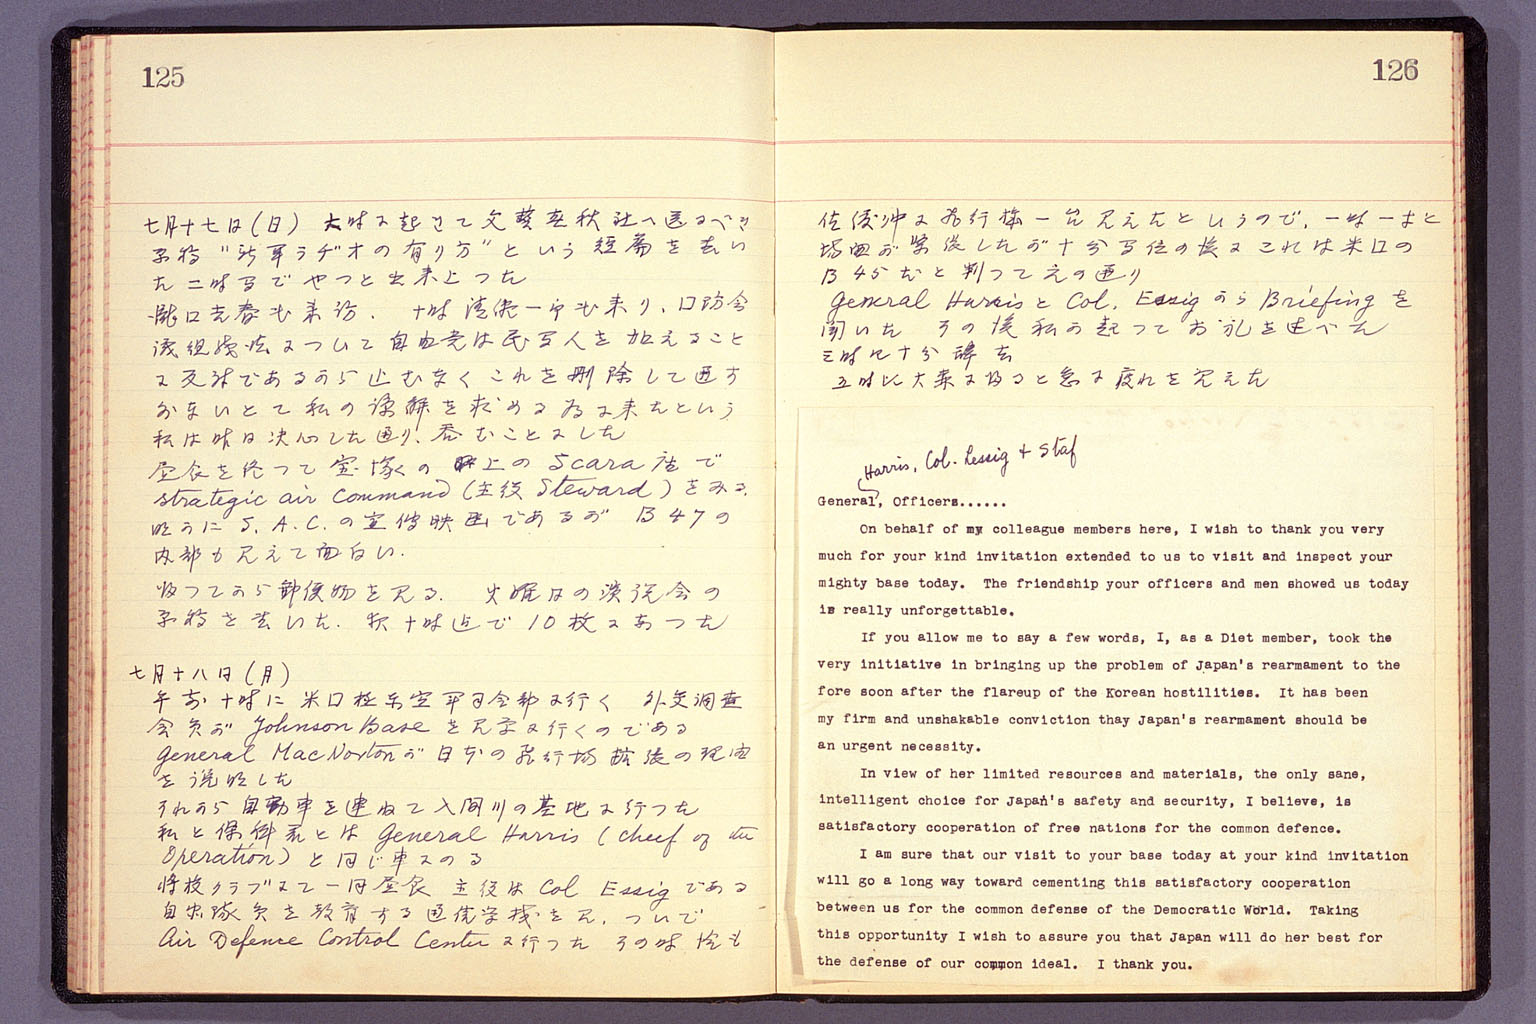 125
七月十七日(日) 六時に起きて文藝春秋社へ送るべき
原稿"新軍ラヂオの有り方"という短篇を書い
た 二時までやつと出来上つた
瀧口 も来訪. 十時 も来り、
について自由党は民 人を加えること
に反対であるから止むなくこれを削除して通す
おないとて私の諒解を求める為に来たという
私は昨日決心した通り、呑むことにした
昼食を終つて宝塚の 上の Scara 座で
Strategic air Command (主役 Steward) をみる.
明らかに S. A. C. の宣伝映画であるが B 47 の
内部も見えて面白い.
帰つてから郵便物を見る. 火曜日の演説会の
原稿を書いた. 夜十時迄で10枚になつた
七月十八日(月)
午前十時に米口極東空軍司令部に行く 外交調査
会員が Johnson Base を見学に行くのである
General MacNorton が日本の飛行場拡張の理由
を説明した
それから自動車を連ねて入間川の基地に行つた
私と とは General Harris (Cheef of the
Operation) と同じ車にのる
将校クラブにて一同昼食 主役は Col Essig である
自衛隊員を教育する通信学校を見, ついで
Air Defence Control Center に行つた その時 も
126
佐渡沖に飛行機一台見えたというので, 一時一寸と
場面が緊張したが十分 位の後にこれは米口の
B 45 だと判つて元の通り
General Harris と Col. Essig から Briefing を
聞いた その後私が起つてお礼を述べた
三時四十分辞去
五時 大森に帰ると急に疲れを覚えた
Harris, Col. Lessig + Staf
General, Officers......
On behalf of my colleague members here, I wish to thank you very
much for your kind invitation extended to us to visit and inspect your
mighty base today. The friendship your officers and men showed us today
is really unforgettable.
If you allow me to say a few words, I, as a Diet member, took the
very initiative in bringing up the problem of Japan's rearmament to the
fore soon after the flareup of the Korean hostilities. It has been
my firm and unshakable conviction thay Japan's rearmament should be
an urgent necessity.
In view of her limited resources and materials, the only sane,
intelligent choice for Japan's safety and security, I believe, is
satisfactory cooperation of free nations for the common defence.
I am sure that our visit to your base today at your kind invitation
will go a long way toward cementing this satisfactory cooperation
between us for the common defense of the Democratic World. Taking
this opportunity I wish to assure you that Japan will do her best for
the defense of our common ideal. I thank you.